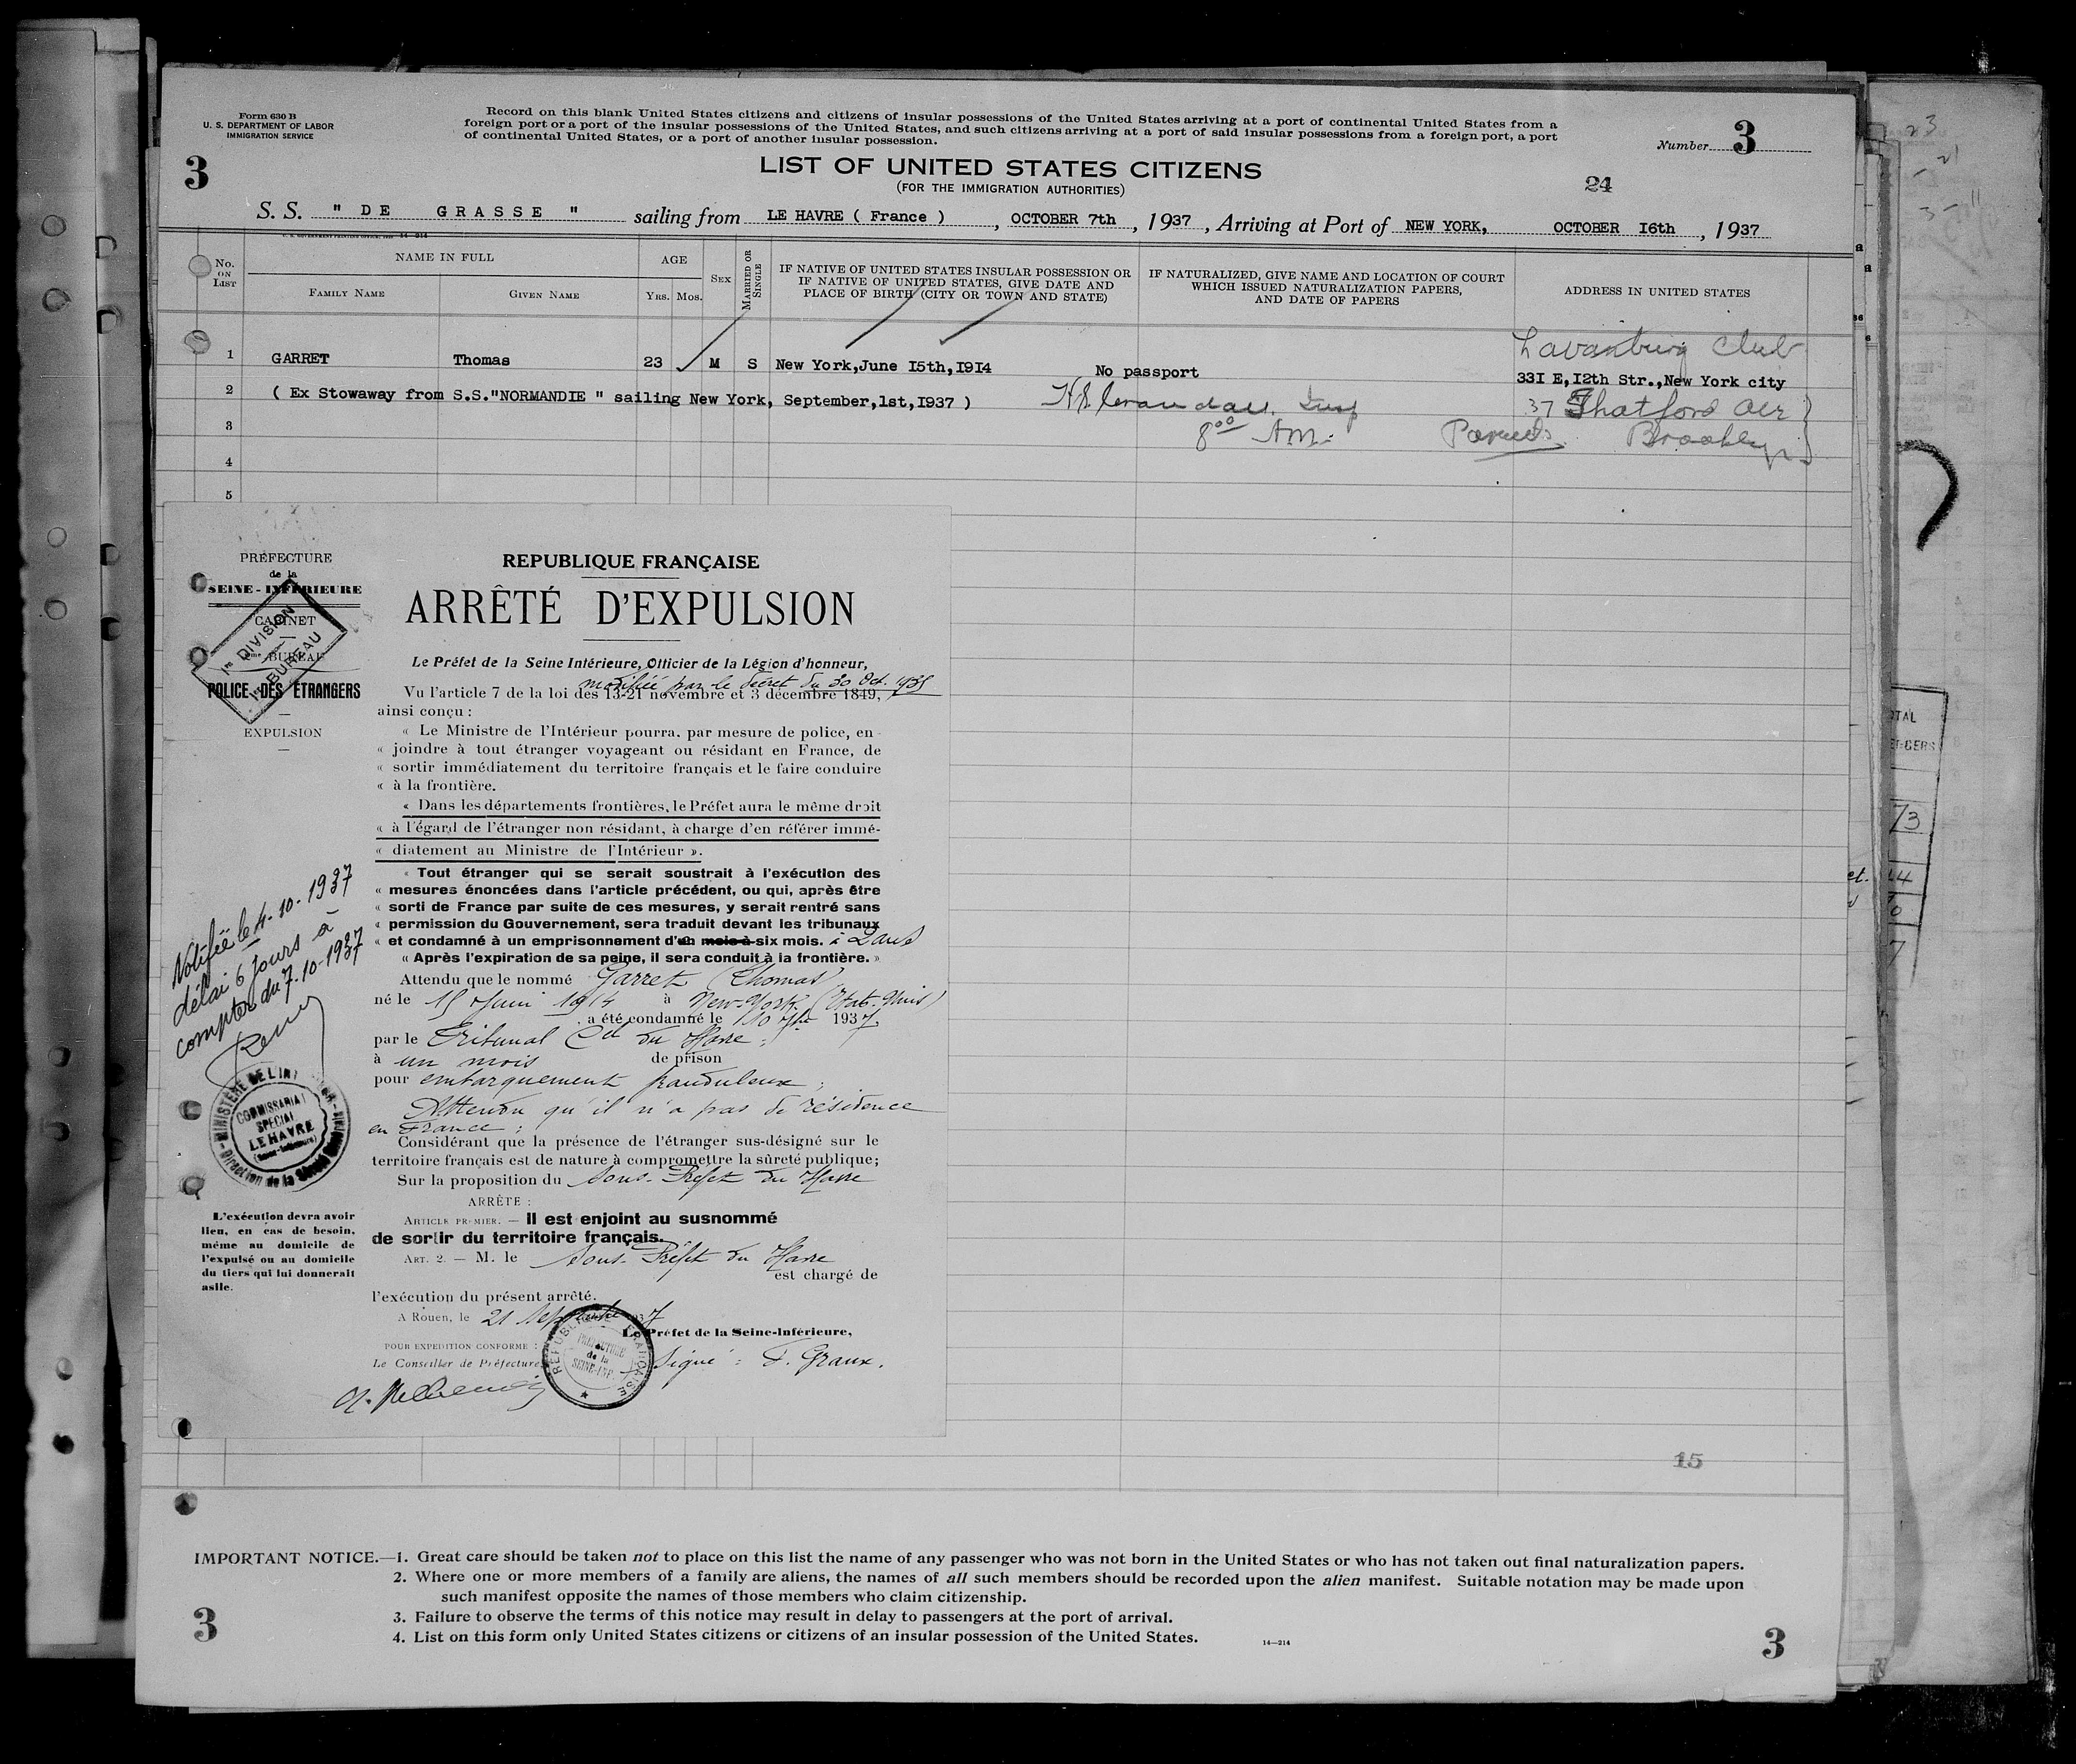 Form 630 B
U. S. DEPARTMENT OF LABOR
IMMIGRATION SERVICE
Record on this blank United States citizens and citizens of insular possessions of the United States arriving at a port of continental United States from a
foreign port or a port of the insular possessions of the United States, and such citizens arriving at a port of said insular possessions from a foreign port, a port
of continental United States, or a port of another insular possession.
Number 3
3
LIST OF UNITED STATES CITIZENS
(FOR THE IMMIGRATION AUTHORITIES)
24
S. S. " DE GRASSE " sailing from LE HAVRE ( France ) , OCTOBER 7th , 1937 , Arriving at Port of NEW YORK, OCTOBER I6th , 1937
No. ON LIST
NAME IN FULL
FAMILY NAME
GIVEN NAME
AGE
Yrs. Mos.
SEX
MARRIED OR SINGLE
IF NATIVE OF UNITED STATES INSULAR POSSESSION OR
IF NATIVE OF UNITED STATES, GIVE DATE AND
PLACE OF BIRTH (CITY OR TOWN AND STATE)
IF NATURALIZED, GIVE NAME AND LOCATION OF COURT
WHICH ISSUED NATURALIZATION PAPERS,
AND DATE OF PAPERS
ADDRESS IN UNITED STATES
Lavanburg Club
1 GARRET Thomas 23 M S New York,June I5th,I9I4 No passport 33I E,I2th Str.,New York city
2 ( Ex Stowaway from S.S."NORMANDIE " sailing New York, September,1st,I937 )
37 Thatford Ave
3 8⁰⁰ AM. Parents Brooklyn
4
5
PRÉFECTURE
de la
SEINE-INFÉRIEURE
CABINET
BUREAU
1re DIVISION
1er BUREAU
POLICE DES ÉTRANGERS
EXPULSION
REPUBLIQUE FRANÇAISE
ARRÊTÉ D'EXPULSION
Le Préfet de la Seine Intérieure, Officier de la Légion d'honneur,
modifiée par le décret du 30 Oct. 1935
Vu l'article 7 de la loi des 13-21 novembre et 3 décembre 1849,
ainsi conçu :
« Le Ministre de l'Intérieur pourra, par mesure de police, en-
« joindre à tout étranger voyageant ou résidant en France, de
« sortir immédiatement du territoire français et le faire conduire
« à la frontière.
« Dans les départements frontières, le Préfet aura le même droit
« à l'égard de l'étranger non résidant, à charge d'en référer immé-
« diatement au Ministre de l'Intérieur ».
« Tout étranger qui se serait soustrait à l'exécution des
« mesures énoncées dans l'article précédent, ou qui, après être
« sorti de France par suite de ces mesures, y serait rentré sans
« permission du Gouvernement, sera traduit devant les tribunaux
« et condamné à un emprisonnement d'un mois à six mois. à 2 ans
« Après l'expiration de sa peine, il sera conduit à la frontière. »
Attendu que le nommé Garret (Thomas)
né le 15 Juin 1914 à New-York (Etats-Unis)
a été condamné le 10 7bre 1937
par le Tribunal Cel du Havre ;
à un mois de prison
pour embarquement frauduleux ;
Attendu qu'il n'a pas de résidence
en France ;
Considérant que la présence de l'étranger sus-désigné sur le
territoire français est de nature à compromettre la sûreté publique;
Sur la proposition du Sous-Préfet du Havre
ARRÊTE :
ARTICLE PREMIER. — Il est enjoint au susnommé
de sortir du territoire français.
ART. 2. — M. le Sous-Préfet du Havre
est chargé de
l'exécution du présent arrêté.
A Rouen, le 21 Septembre 1937
Le Préfet de la Seine-Inférieure,
POUR EXPEDITION CONFORME :
Le Conseiller de Préfecture
Signé : F. Graux.
REPUBLIQUE FRANÇAISE
PREFECTURE
de la
SEINE-INF.
Notifié le 4-10-1937
délai 6 jours à
compter du 7-10-1937
MINISTÈRE DE L'INTÉRIEUR
Direction de la Sûreté
COMMISSARIAT
SPÉCIAL
LE HAVRE
(Seine-Inférieure)
L'exécution devra avoir
lieu, en cas de besoin,
même au domicile de
l'expulsé ou au domicile
du tiers qui lui donnerait
asile.
15
IMPORTANT NOTICE.—1. Great care should be taken not to place on this list the name of any passenger who was not born in the United States or who has not taken out final naturalization papers.
2. Where one or more members of a family are aliens, the names of all such members should be recorded upon the alien manifest. Suitable notation may be made upon
such manifest opposite the names of those members who claim citizenship.
3. Failure to observe the terms of this notice may result in delay to passengers at the port of arrival.
4. List on this form only United States citizens or citizens of an insular possession of the United States.
14—214
3
3